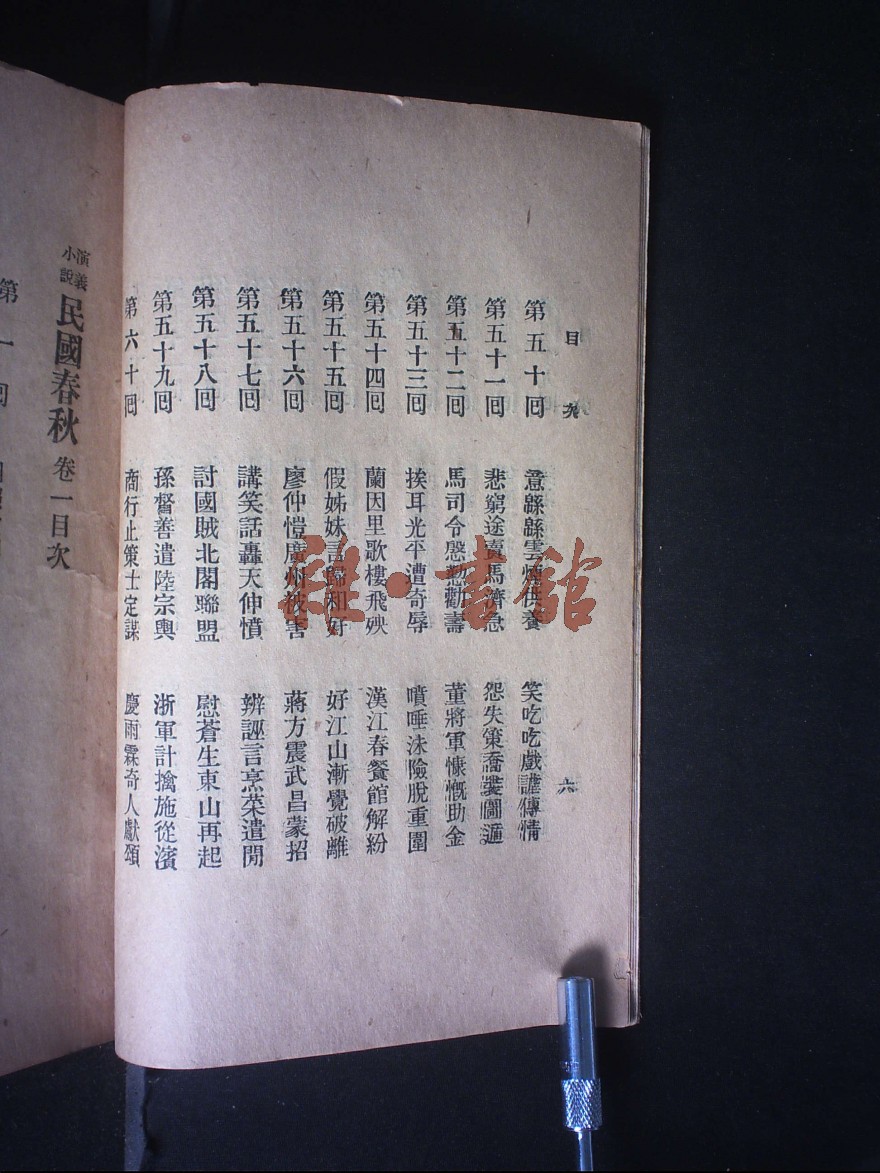 目次 六
第五十回 意緜緜雲煙供養 笑吃吃戲謔傳情
第五十一回 悲窮途賣馬籌急 怨失策喬裝圖遁
第五十二回 馬司令慇懃勸壽 董將軍慷慨助金
第五十三回 挨耳光平遭奇辱 噴唾沫險脫重圍
第五十四回 蘭因里歌樓飛殃 漢江春餐館解紛
第五十五回 假姊妹言歸和好 好江山漸覺破離
第五十六回 廖仲愷廣州被害 蔣方震武昌蒙招
第五十七回 講笑話轟天仲憤 辨誣言烹茱遣閒
第五十八回 討國賊北閣聯盟 慰蒼生東山再起
第五十九回 孫督善遣陸宗輿 浙軍計擒施從濱
第六十回 商行止策士定謀 慶雨霖奇人獻頌
演義小說 民國春秋 卷一目次
第一回
雜·書館